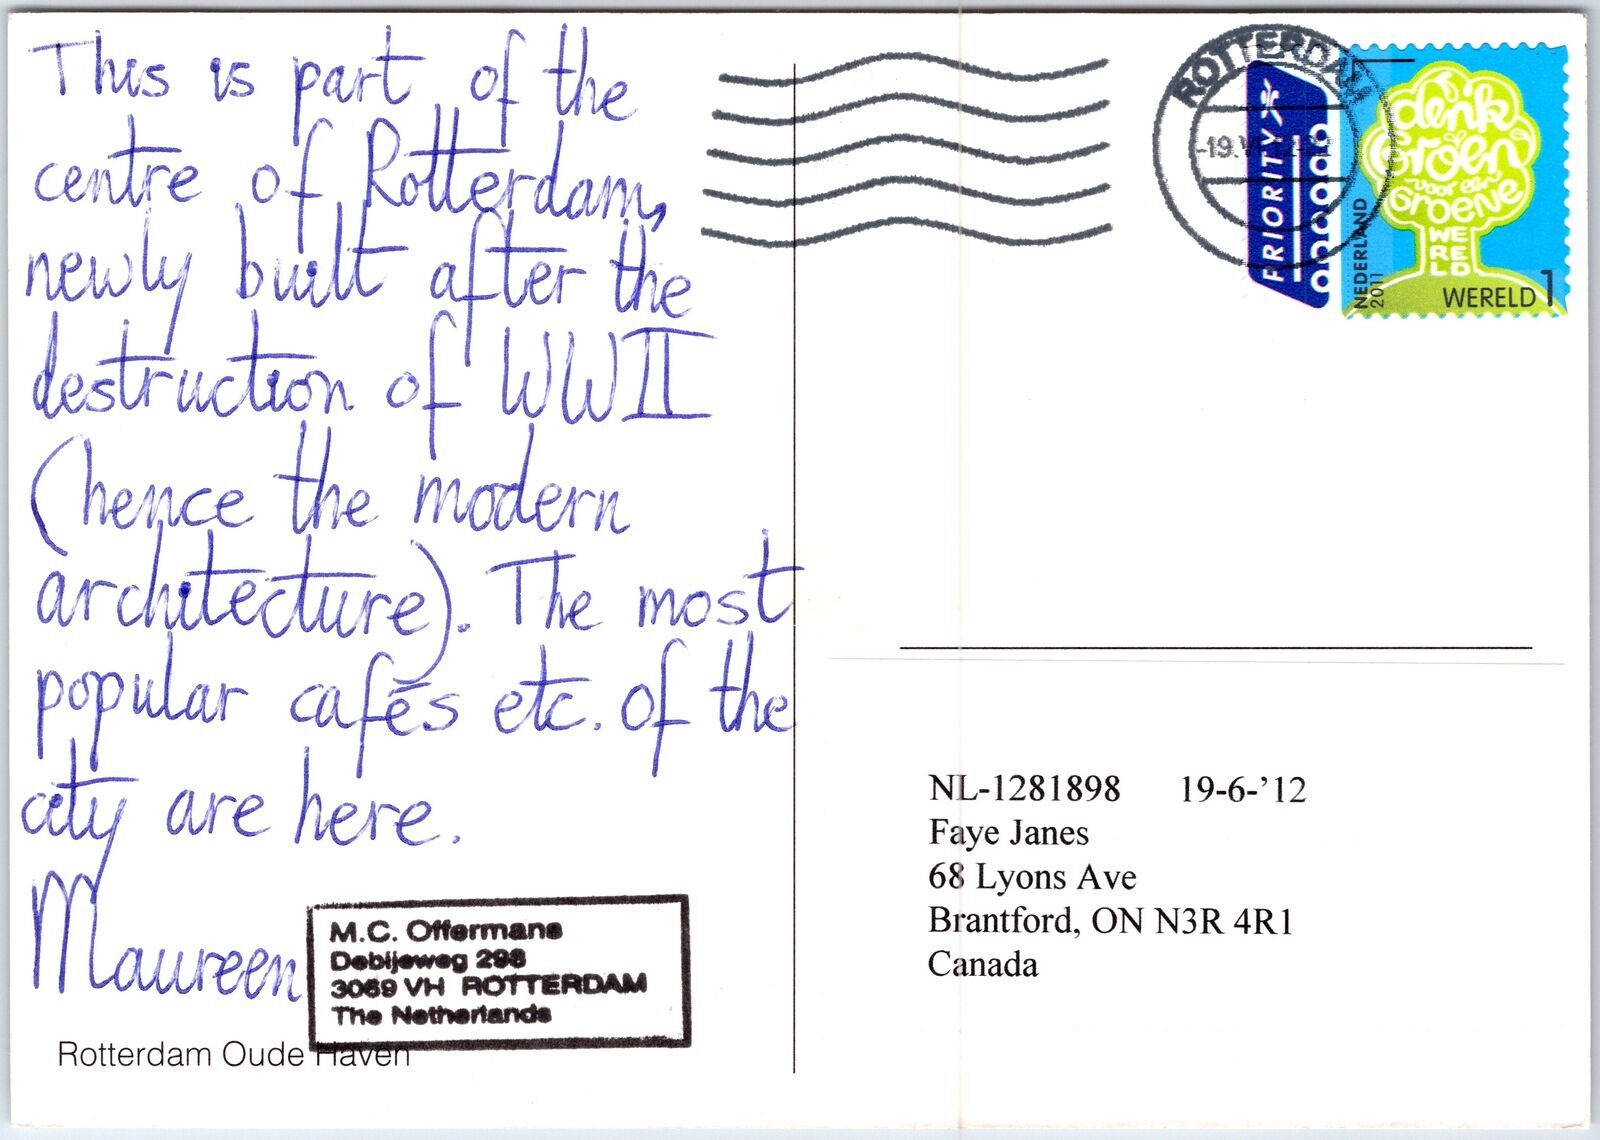 This is part of the
centre of Rotterdam,
newly built after the
destruction of WWII
(hence the modern
architecture). The most
popular cafés etc. of the
city are here.
Maureen
M.C. Offermans
Debijeweg 298
3069 VH ROTTERDAM
The Netherlands
Rotterdam Oude Haven
ROTTERDAM
-19.VI.12
PRIORITY
NEDERLAND
2011
denk
Groen
voor een
Groene
WE
RE
LD
WERELD 1
NL-1281898 19-6-'12
Faye Janes
68 Lyons Ave
Brantford, ON N3R 4R1
Canada